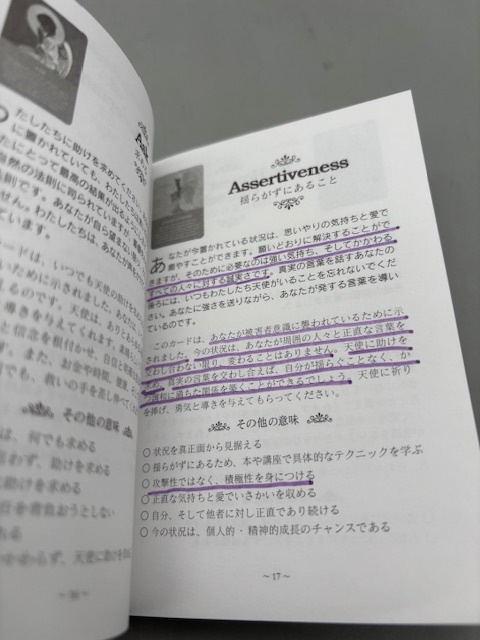 たしたちに助けを求めてください
に置かれていても、わたしたちは
たにとって最高の結果が出るよう
自然の法則に司られていますが、
法則です。あなたが自ら望まない
せん。わたしたちは、あなた
ています。
カードは、いつでも天使の助けを
いために示されました。あなたは
するのです。天使は、ありとあら
きを与えてくれます。
と信念をもち
す。また、お金や時間、健康、そ
でも、救いの手を差し伸べて
その他の意味
は、何でも求める
思わず、助けを求める
に助けを求める
任を背負おうとしない
れる
わらず、天使に助けを
~16~
Assertiveness
揺らがずにあること
あなたが今置かれている状況は、思いやりの気持ちと愛で
癒やすことができます。願いどおりに解決することがで
きますが、そのために必要なのは強い気持ち、そしてかかわる
すべての人々に対する誠実さです。真実の言葉を話すあなたの
後ろには、いつもわたしたち天使がいることを忘れないでくだ
さい。あなたに強さを送りながら、あなたが発する言葉を導い
ているのです。
このカードは、あなたが被害者意識に襲われているために示
されました。今の状況は、あなたが周囲の人々と正直な言葉を
交わし合わない限り、変わることはありません。天使に助けを
求め、真実の言葉を交わし合えば、自分が揺らぐことなく、か
つ調和に満ちた関係を築くことができるでしょう。天使に祈り
を捧げ、勇気と導きを与えてもらってください。
その他の意味
○ 状況を真正面から見据える
○ 揺らがずにあるため、本や講座で具体的なテクニックを学ぶ
○ 攻撃性ではなく、積極性を身につける
○ 正直な気持ちと愛でいさかいを収める
○ 自分、そして他者に対し正直であり続ける
○ 今の状況は、個人的・精神的成長のチャンスである
~17~